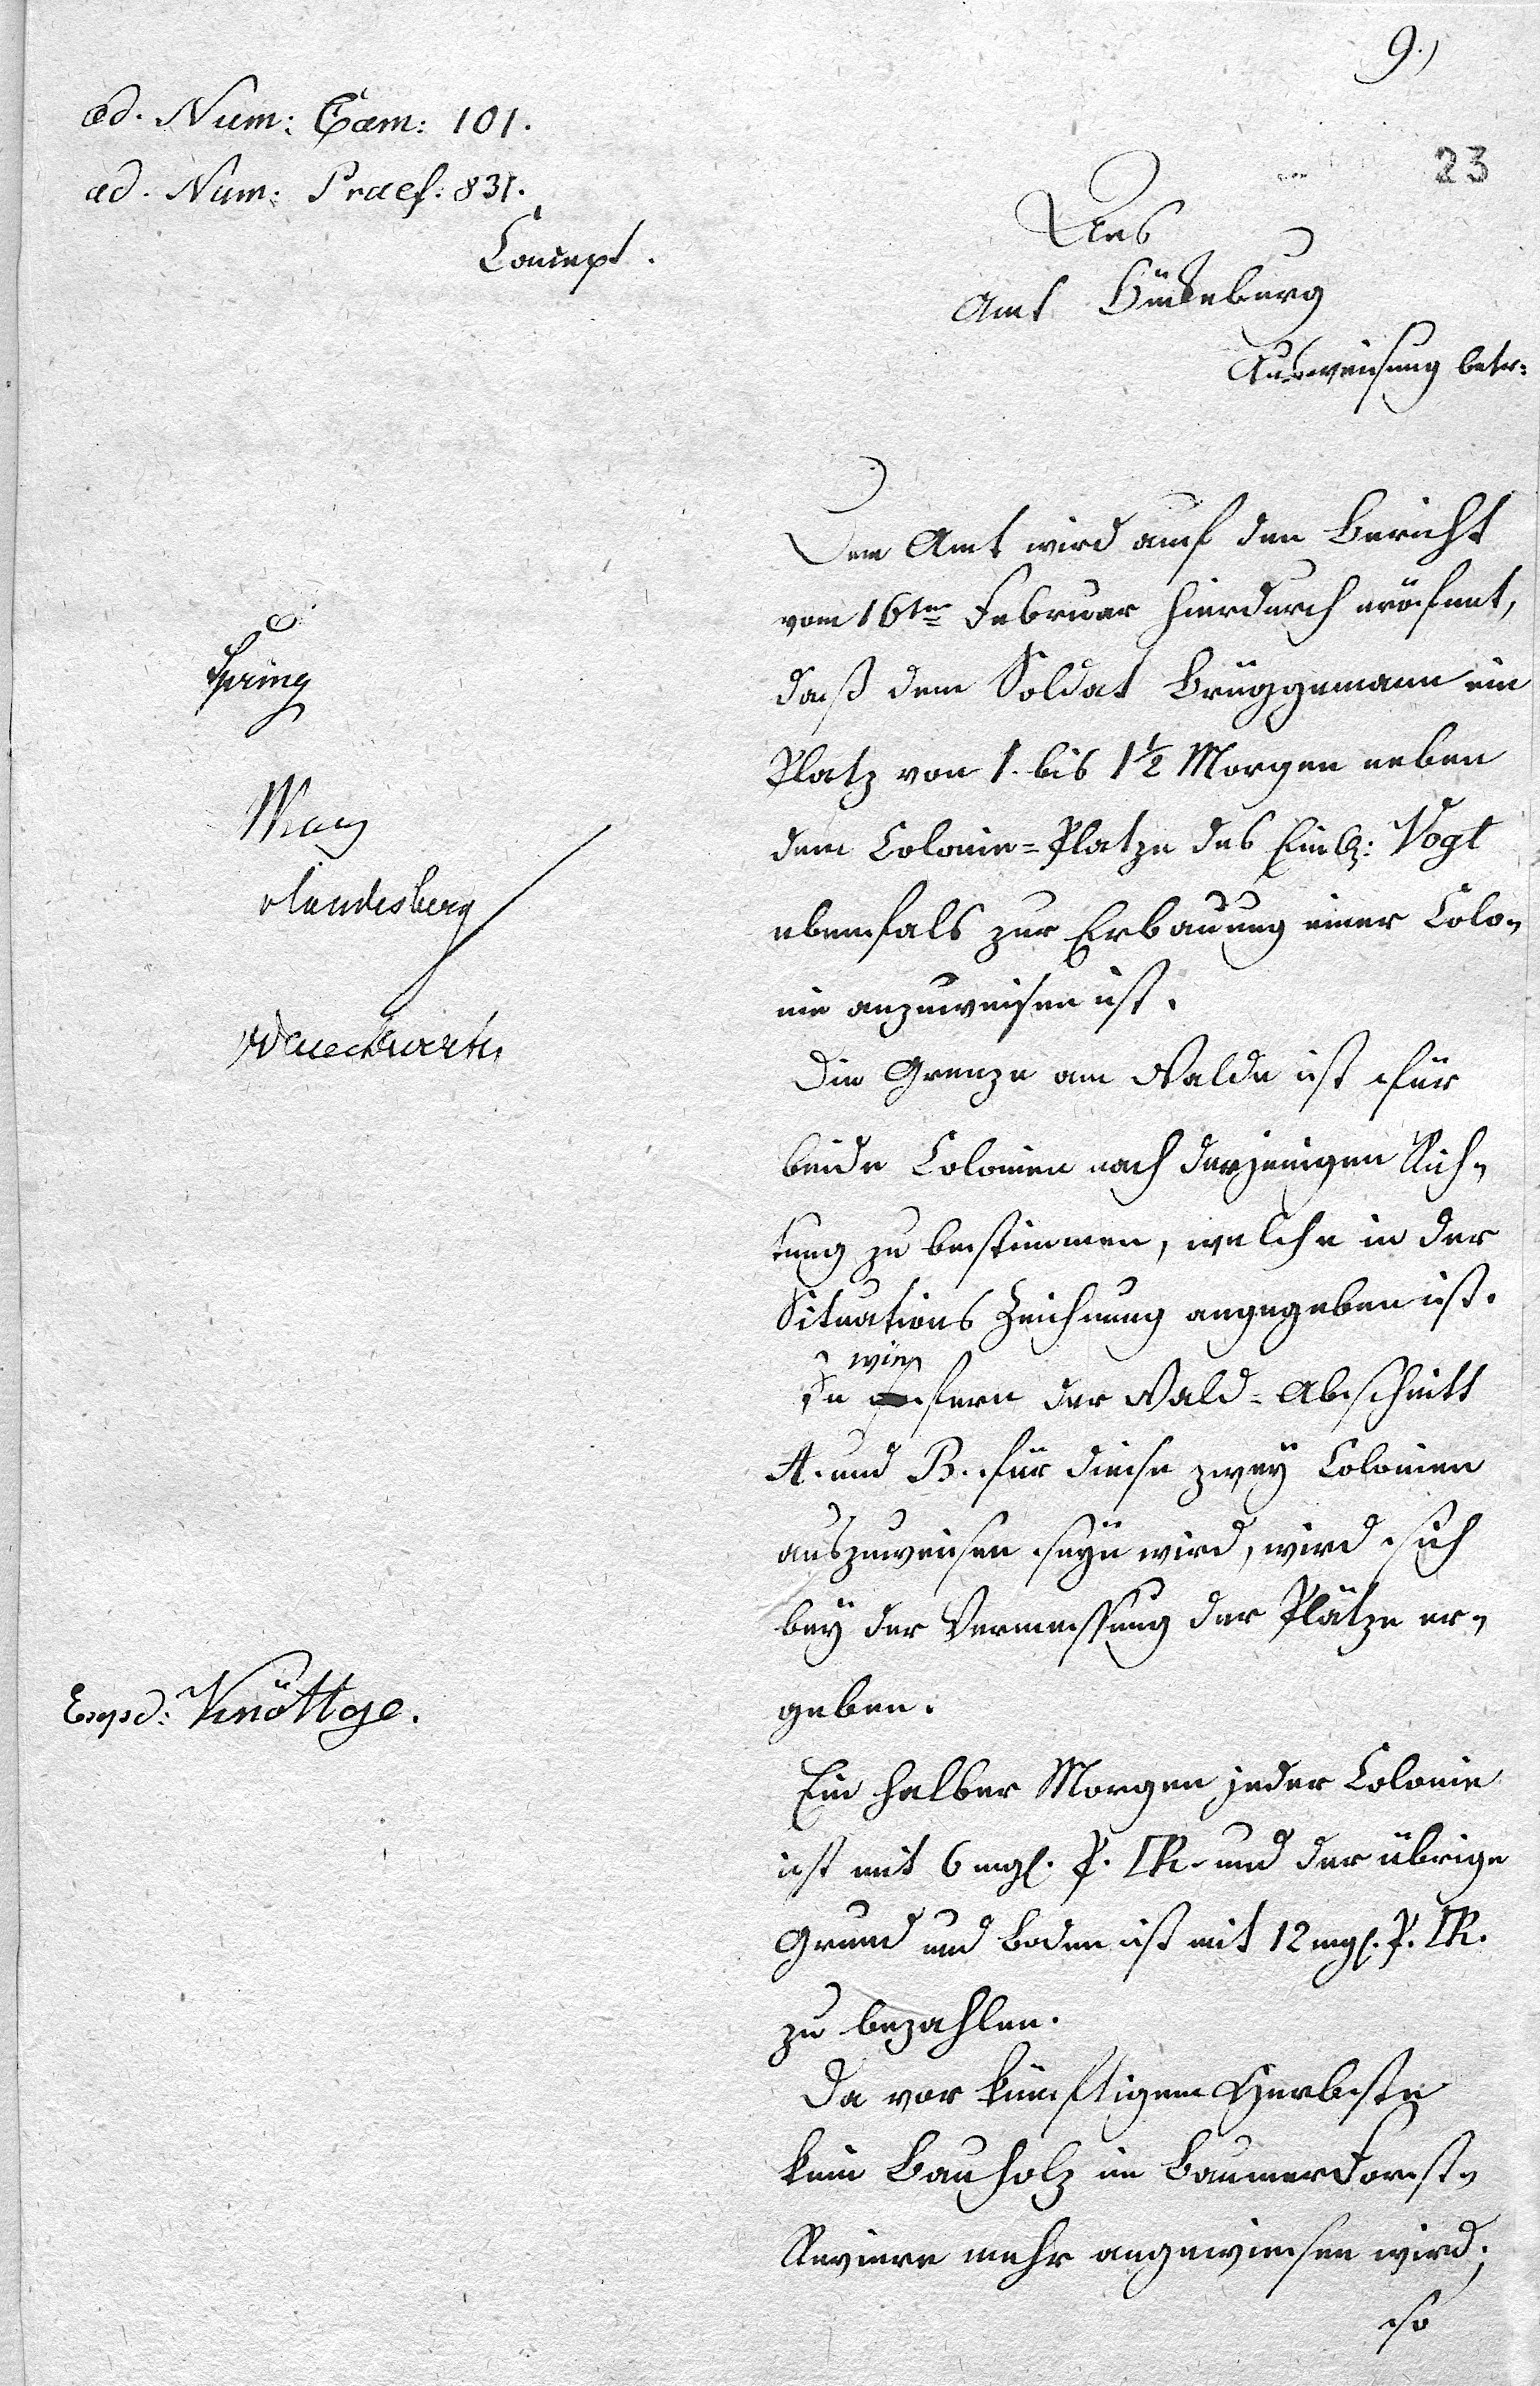 9.)
23
ad. Num: Cam: 101.
ad. Num: Praef: 831.
Concept.
Ans
Amt Bückeburg
Ausweisung betr:
Dem Amt wird auf den Bericht
vom 16ten Februar hierdurch eröfnet,
daß dem Soldat Brüggemann ein
Platz von 1. bis 1½ Morgen neben
dem Colonie=Platze des Einl: Vogt
ebenfals zur Erbauung einer Colo-
nie anzuweisen ist.
Die Grenze am Walde ist für
beide Colonien nach derjenigen Rich-
tung zu bestimmen, welche in der
Situations Zeichnung angegeben ist.
In wie fern der Wald-Abschnitt
A. und B. für diese zwey Colonien
auszuweisen seyn wird, wird sich
bey der Vermessung der Plätze er-
geben.
Ein halber Morgen jeder Colonie
ist mit 6 mgl. P. □R. und der übrige
Grund und Boden ist mit 12 mgl. P. □R.
zu bezahlen.
Da vor künftigem Herbste
kein Bauholz im Baumer Forst-
Reviere mehr angewiesen wird;
so
Spring
May
Landesberg
Exped: Knöttge.